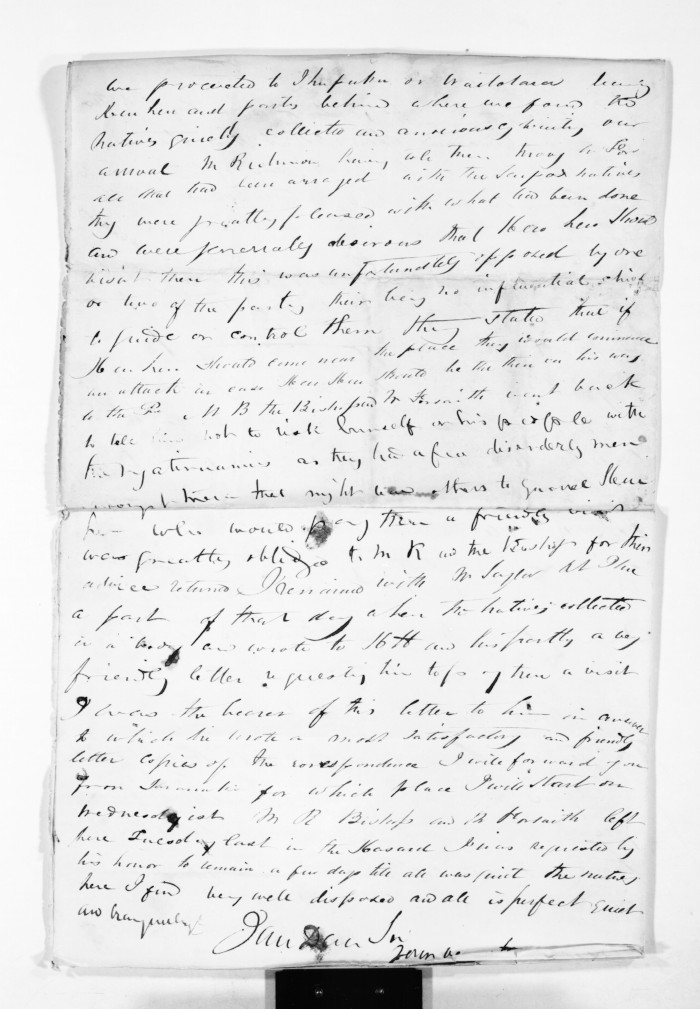 we proceeded to or leaving
and party behind where we found the
Natives quietly collected and anxiously waiting our
arrival Mr Richmond having told them through Mr
all that had been arranged with the natives
they were greatly pleased with what had been done
and were generally desirous that Heu Heu should
visit them this was unfortunately opposed by one
or two of the party their being no influential chief
to guide or control them they stated that if
Heu Heu should come near the place they would commence
an attack in case Heu Heu should be then on his way
to the Mr R the Bishop and Mr Forsaith went back
to tell him not to risk himself or his people with
the as they had a few disorderly men
amongst them that might cause others to quarrel Heu
heu who would pay them a friendly visit
was greatly obliged to Mr R and the Bishop for their
advice returned I remained with Mr Taylor at
a part of that day when the natives collected
in a body and wrote to H H and his party a very
friendly letter requesting him to pay them a visit
I was the bearer of this letter to him in answer
to which he wrote a most satisfactory and friendly
letter copies of the correspondence I will forward you
from for which place I will start on
Wednesday Mr R Bishop and Mr Forsaith left
here Tuesday last in the Hazard I was requested by
his honor to remain a few days till all was quiet the natives
here I find very well disposed and all is perfect quiet
and tranquility
I am Dear Sir